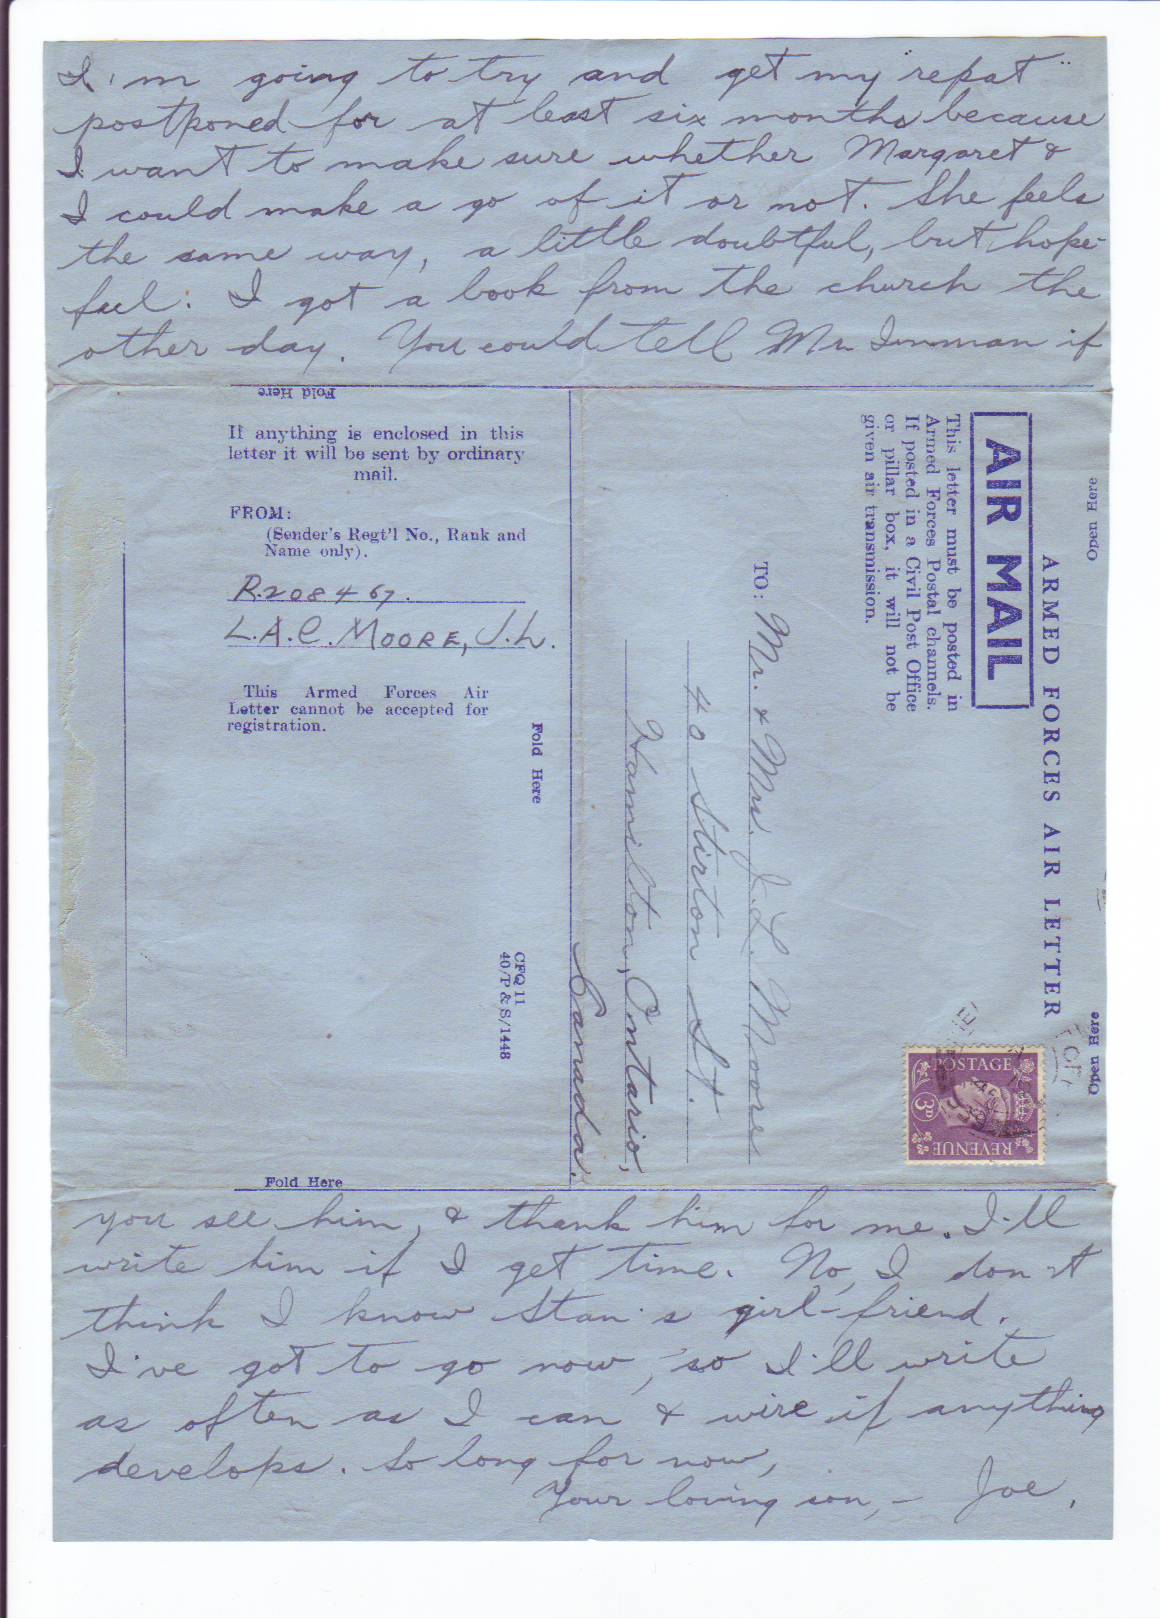 I'm going to try and get my "repat"
postponed for at least six months because
I want to make sure whether Margaret &
I could make a go of it or not. She feels
the same way, a little doubtful, but hope-
ful. I got a book from the church the
other day. You could tell Mr. Inman if
Fold Here
If anything is enclosed in this
letter it will be sent by ordinary
mail.
FROM:
(Sender's Regt'l No., Rank and
Name only).
R.208467.
L.A.C. MOORE, J.L.
This Armed Forces Air
Letter cannot be accepted for
registration.
Fold Here
CFQ 11
40/P & S/1448
Open Here
Open Here
ARMED FORCES AIR LETTER
AIR MAIL
This letter must be posted in
Armed Forces Postal channels.
If posted in a Civil Post Office
or pillar box, it will not be
given air transmission.
POSTAGE
3D
REVENUE
TO: Mr. & Mrs. J. L. Moore
40 Stirton St.
Hamilton, Ontario,
Canada.
Fold Here
you see him, & thank him for me. I'll
write him if I get time. No, I don't
think I know Stan's girl-friend.
I've got to go now, so I'll write
as often as I can & wire if anything
develops. So long for now,
Your loving son, - Joe.